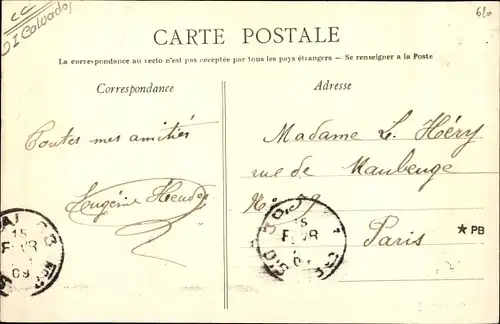 CC
Calvados
610
CARTE POSTALE
La correspondance au recto n'est pas acceptée par tous les pays étrangers — Se renseigner a la Poste
Correspondance
Adresse
Toutes mes amitiés
Eugénie
Madame L. Héry
rue de Maubeuge
Paris
*PB
15
FEVR
09
15
FEVR